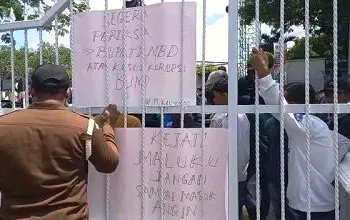 SEGERA
PERIKSA
BUPATI MBD
ATAS KASUS KORUPSI
BUMD
KEJATI
MALUKU
JANGAN
SAMPAI MASUK
ANGIN